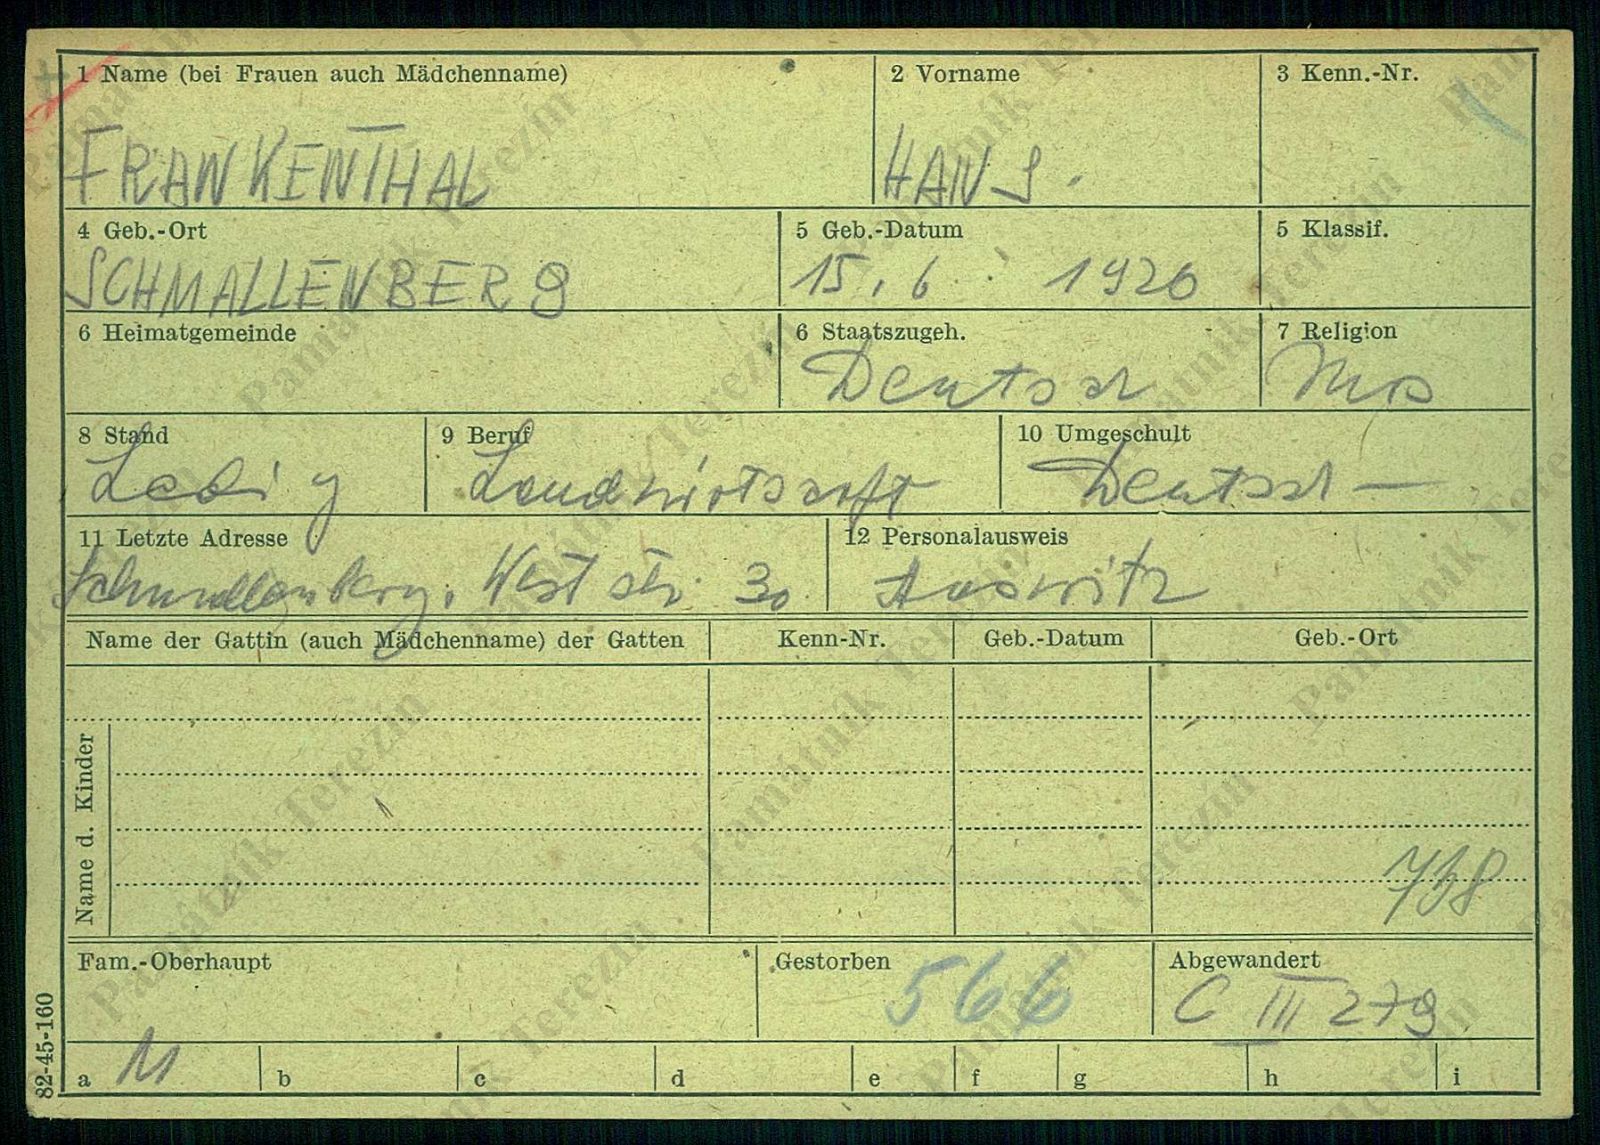 1 Name (bei Frauen auch Mädchenname)
2 Vorname
3 Kenn.-Nr.
FRANKENTHAL
HANS.
4 Geb.-Ort
5 Geb.-Datum
5 Klassif.
SCHMALLENBERG
15. 6. 1926
6 Heimatgemeinde
6 Staatszugeh.
7 Religion
Deutsch
Mos
8 Stand
9 Beruf
10 Umgeschult
Ledig
Landwirtschaft
Deutsch —
11 Letzte Adresse
12 Personalausweis
Schmallenberg. West str. 30
Auswitz
Name der Gattin (auch Mädchenname) der Gatten
Kenn-Nr.
Geb.-Datum
Geb.-Ort
Name d. Kinder
738
Fam.-Oberhaupt
Gestorben
Abgewandert
566
C III 279
82-45-160
a M
b
c
d
e
f
g
h
i
Památník Terezín